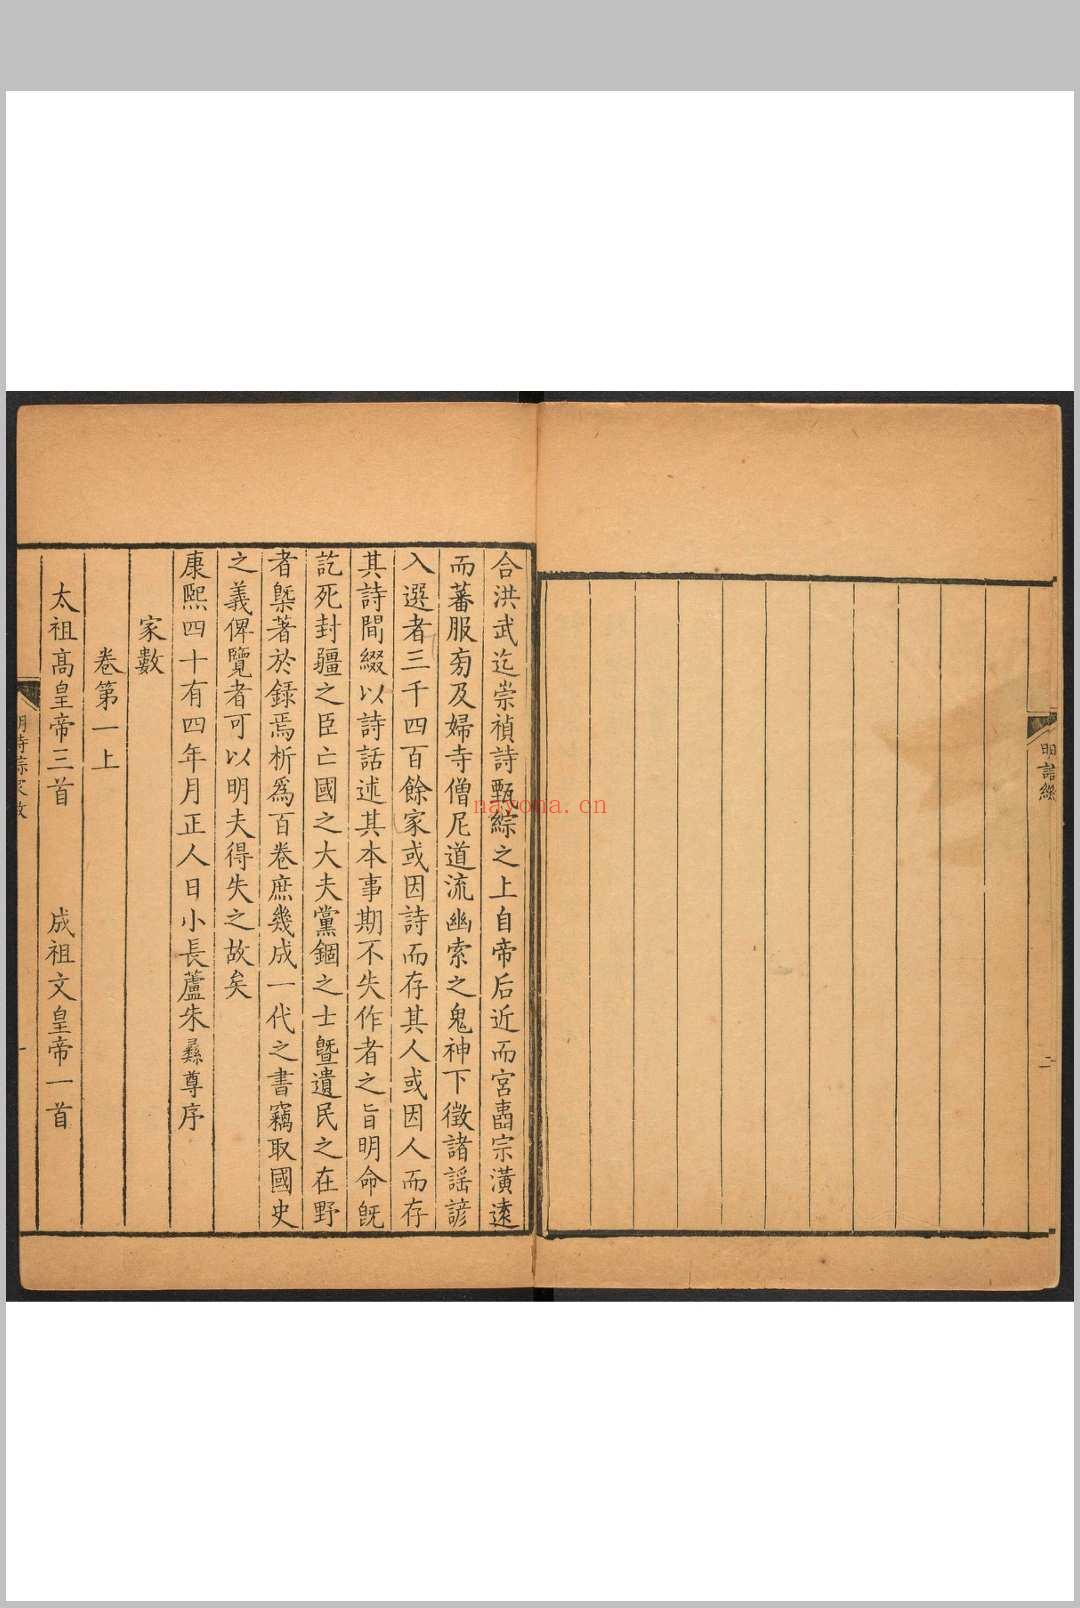 明詩綜
二
合洪武迄崇禎詩甄綜之上自帝后近而宮壼宗潢遠
而蕃服菊及婦寺僧尼道流幽索之鬼神下徵諸謡諺
入選者三千四百餘家或因詩而存其人或因人而存
其詩間綴以詩話述其本事期不失作者之旨明命既
訖死封疆之臣亡國之大夫黨錮之士曁遺民之在野
者槩著於錄焉析爲百卷庶幾成一代之書竊取國史
之義俾覽者可以明夫得失之故矣
康熙四十有四年月正人日小長蘆朱彝尊序
家數
卷第一上
太祖高皇帝三首 成祖文皇帝一首
明詩綜家數
一
nayona.cn